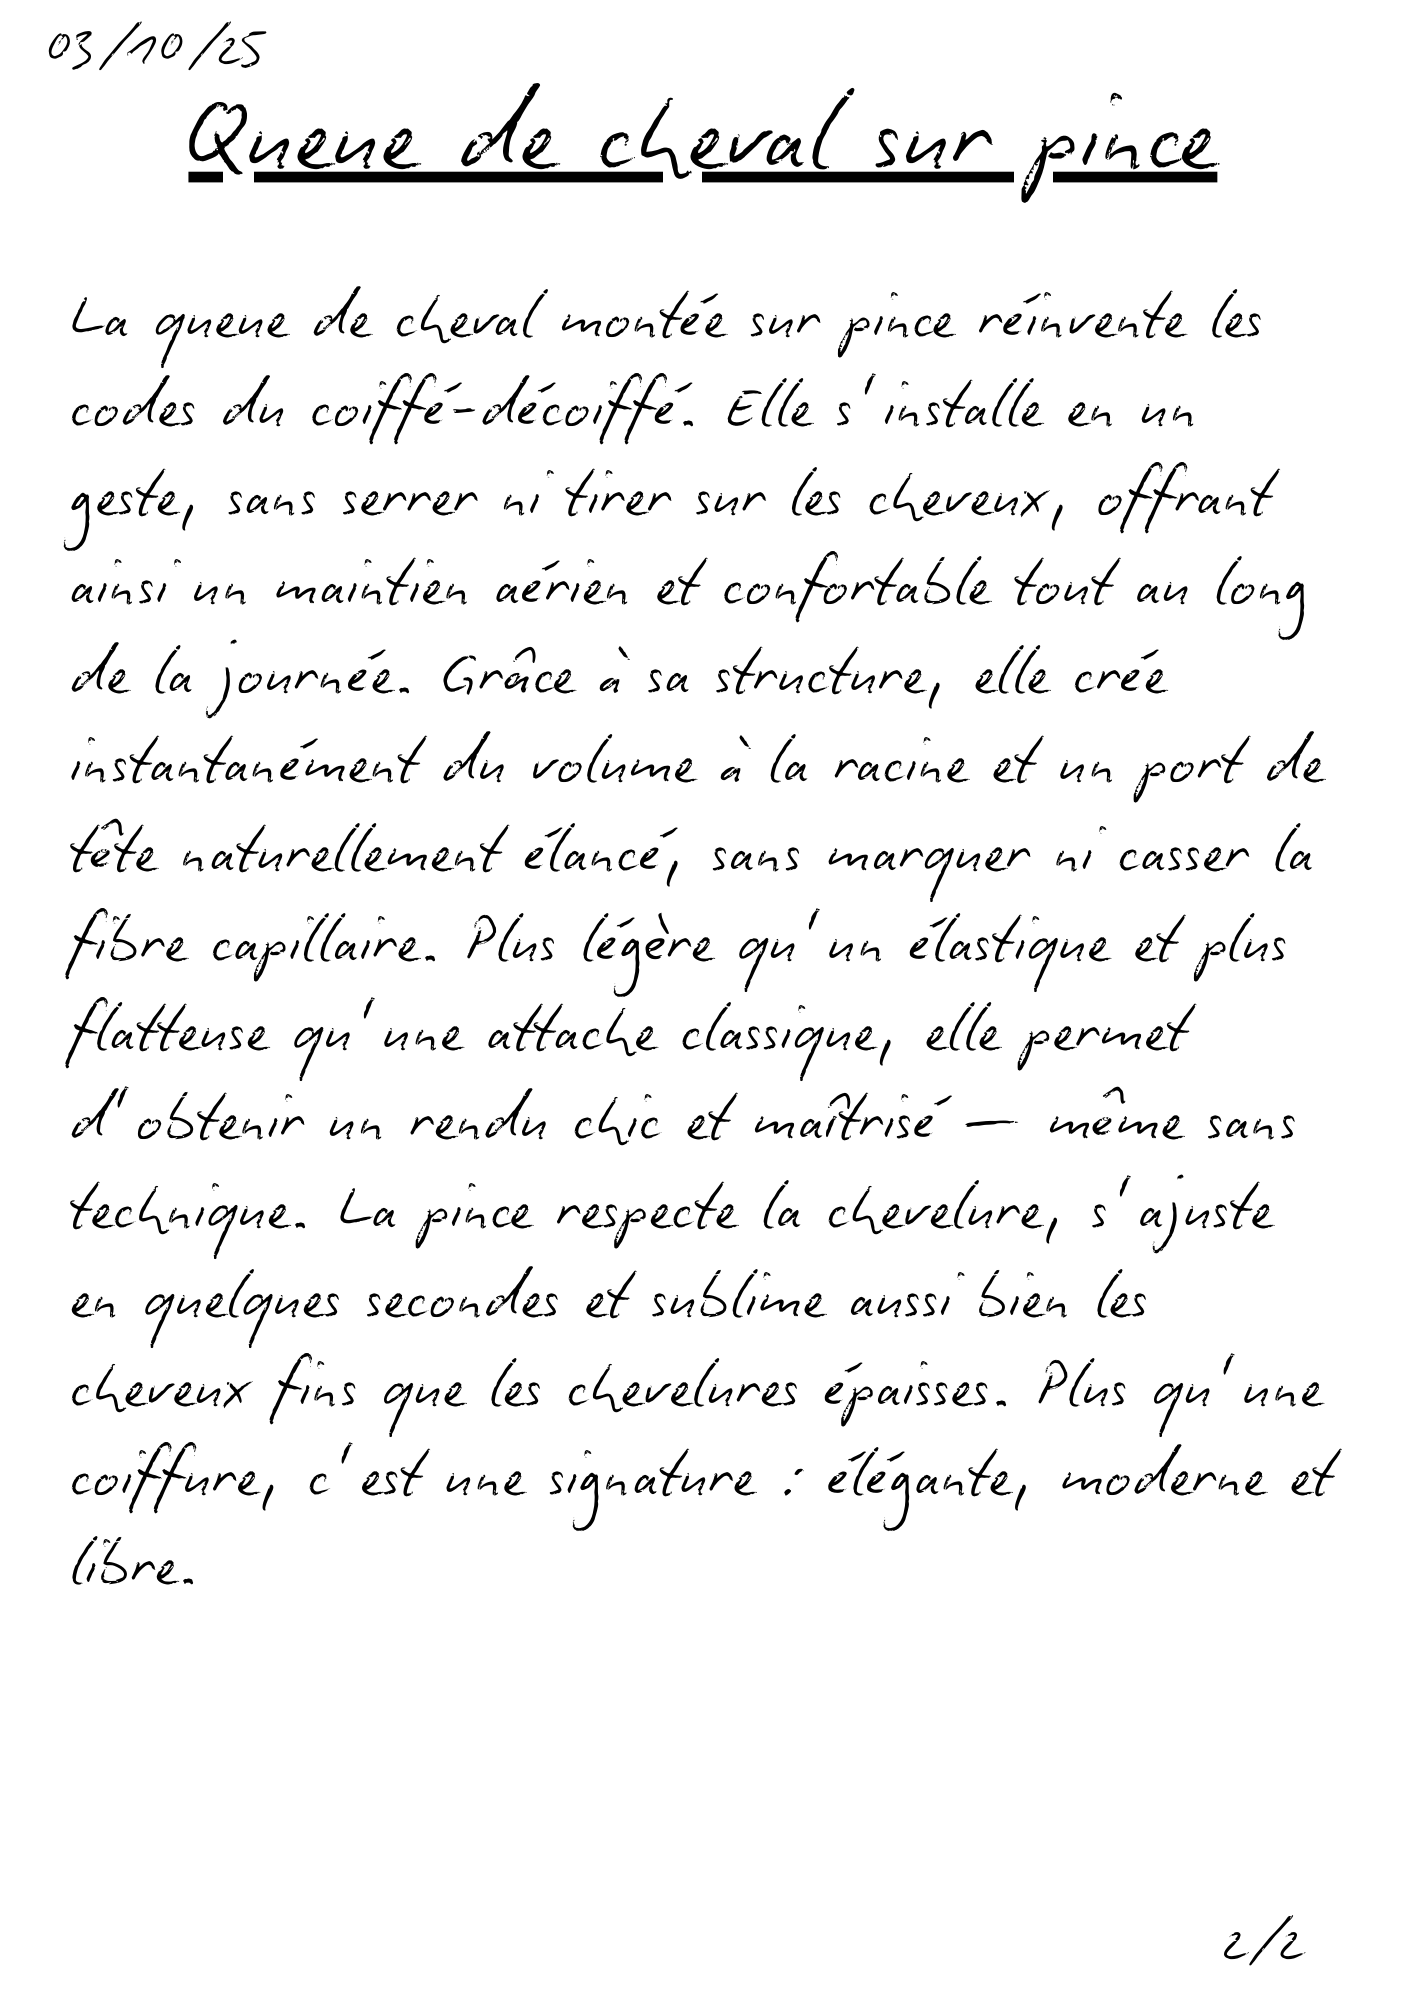 03/10/25
Queue de cheval sur pince
La queue de cheval montée sur pince réinvente les
codes du coiffé-décoiffé. Elle s'installe en un
geste, sans serrer ni tirer sur les cheveux, offrant
ainsi un maintien aérien et confortable tout au long
de la journée. Grâce à sa structure, elle crée
instantanément du volume à la racine et un port de
tête naturellement élancé, sans marquer ni casser la
fibre capillaire. Plus légère qu'un élastique et plus
flatteuse qu'une attache classique, elle permet
d'obtenir un rendu chic et maîtrisé — même sans
technique. La pince respecte la chevelure, s'ajuste
en quelques secondes et sublime aussi bien les
cheveux fins que les chevelures épaisses. Plus qu'une
coiffure, c'est une signature : élégante, moderne et
libre.
2/2